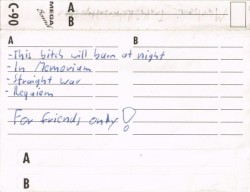 C-90
MEGA
A
B
A B
-This bitch will burn at night
-In Memorium
-Straight war
-Requiem
For friends only!
A
B